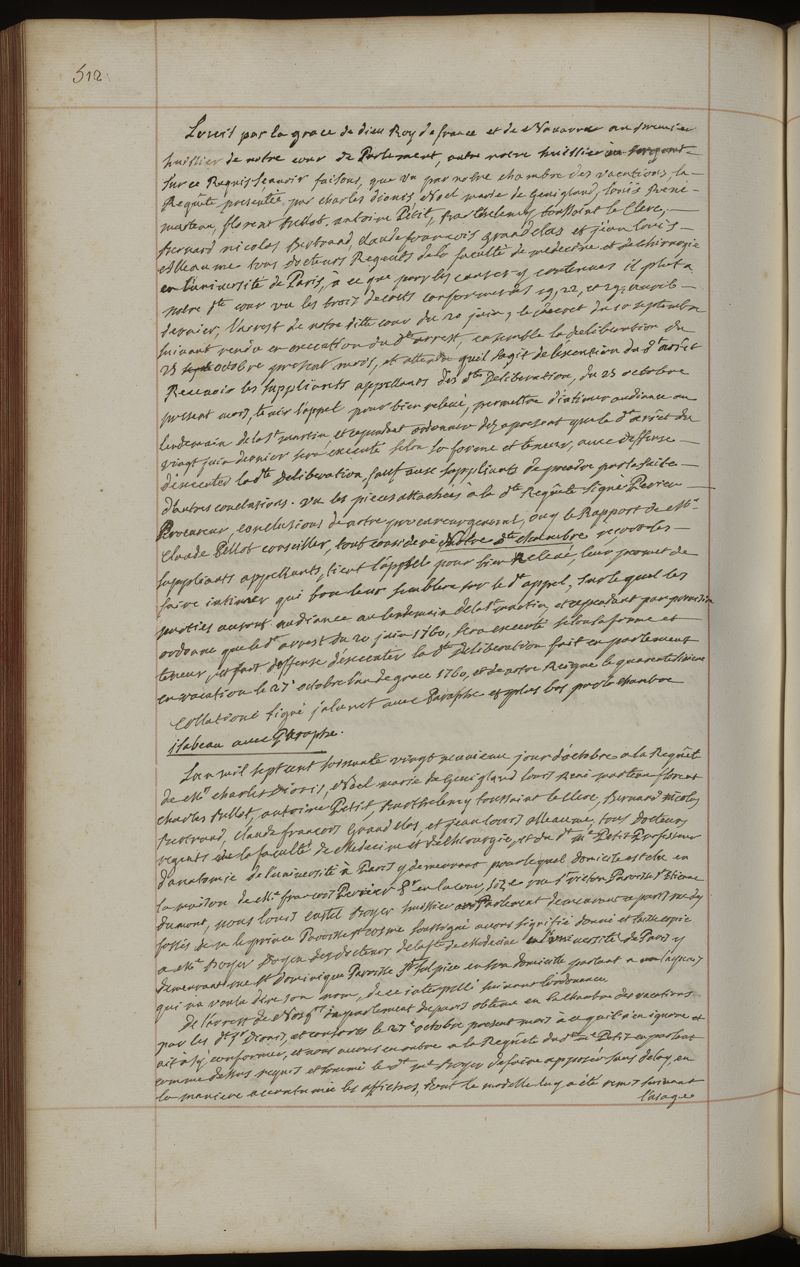 512.
Louis par la grace de dieu Roy de france et de Navarre au premier
huissier de notre cour de Parlement, autre notre huissier ou sergent
sur ce Requis scavoir faisons, que vu par notre chambre des vacations, la
Requête presentée par charles dionis, Noel marie de Gevigland, Louis René
marteau, florent Bellot, antoine Petit, Barthelemy toussaint le Clerc,
Bernard nicolas Bertrand, claude françois grandclas et jean louis
Alleaume tous docteurs Regents de la faculté de medecine et de chirurgie
en l'université de Paris, à ce que pour les causes y contenues il plut a
notre dte cour vu les trois decrets conformes des 19, 22, et 29, avril
dernier, l'arrest de notre ditte cour du 20 juin, le decret du 10 septembre
suivant rendu en execution du dt arrest, ensemble la deliberation du
25 octobre present mois, et attendu qu'il s'agit de l'execution du dt arrêt
Recevoir les suppliants appellants des dtes Deliberation, du 25 octobre
present mois, tenir l'appel pour bien relevé, permettre d'intimer audiance au
lendemain de la St martin, et cependant ordonner des apresent que le dt arrest du
vingt juin dernier sera executé selon sa forme et teneur, avec deffense
d'executer la dte Deliberation, sauf aux suppliants de prendre par la suite
d'autres conclusions. Vu les pieces attachées à la dte Requête signé Perrieu
Procureur, conclusions de notre procureur general, ouy le Rapport de Me
Claude Pellot conseiller, tout consideré Notre dte chambre reçoit les
suppliants appellants, tient l'appel pour bien Relevé, leur permet de
faire intimer qui bon leur semblera sur le dt appel, sur lequel les
parties auront audiance au lendemain de la St martin, et cependant par provision
ordonne que le dt arrest du 20 juin 1760, sera executé selon sa forme et
teneur, et fait deffense d'executer la dte Deliberation fait en parlement
en vacation le 27 octobre l'an de grace 1760, et de notre Reigne le quarante sixieme
Collationé signé avec Paraphe et plus bas par la chambre
isabeau avec Paraphe.
L'an mil sept cent soixante vingt neuvieme jour d'octobre a la Requête
de Me charles Dionis, Noel marie de Gevigland Louis René marteau florent
charles Bellot, antoine Petit, Barthelemy toussaint le Clerc, Bernard Nicolas
Bertrand, claude françois Grandclas, et jean louis alleaume, tous docteurs
regents de la faculté de Medecine et de chirurgie, et du dt Me Petit Professeur
d'anatomie de l'université à Paris y demeurant pour lequel domicile est elu en
la maison de Me françois Perrieu Pr en la cour, size rue Parroisse St Etienne
dumont, nous Louis Castel Boyer huissier au Parlement demeurant a paris rue des
fossés de m. le prince Paroisse St cosme soussigné avons signifié donné et laissé copie
a Me Boyer Doyen des docteurs de la fté de Medecine en l'université de Paris y
demeurant rue St dominique Parroisse St Sulpice en son domicile parlant a un laquais
qui n'a voulu dire son nom, de ce interpellé suivant l'ordonnance
De l'arrest de Nosgrs du parlement de paris obtenu en la chambre des vacations
par les dt Srs Dionis, et consorts le 27 octobre present mois à ce qu'il n'en ignore et
ait à s'y conformer, et nous avons en outre a la Requête du dt Me Petit en parlant
comme dessus requis et sommé le dt Me Boyer de faire apposer sans delay, en
la maniere accoutumée les affiches, dont le modelle luy a été remis suivant
l'usage